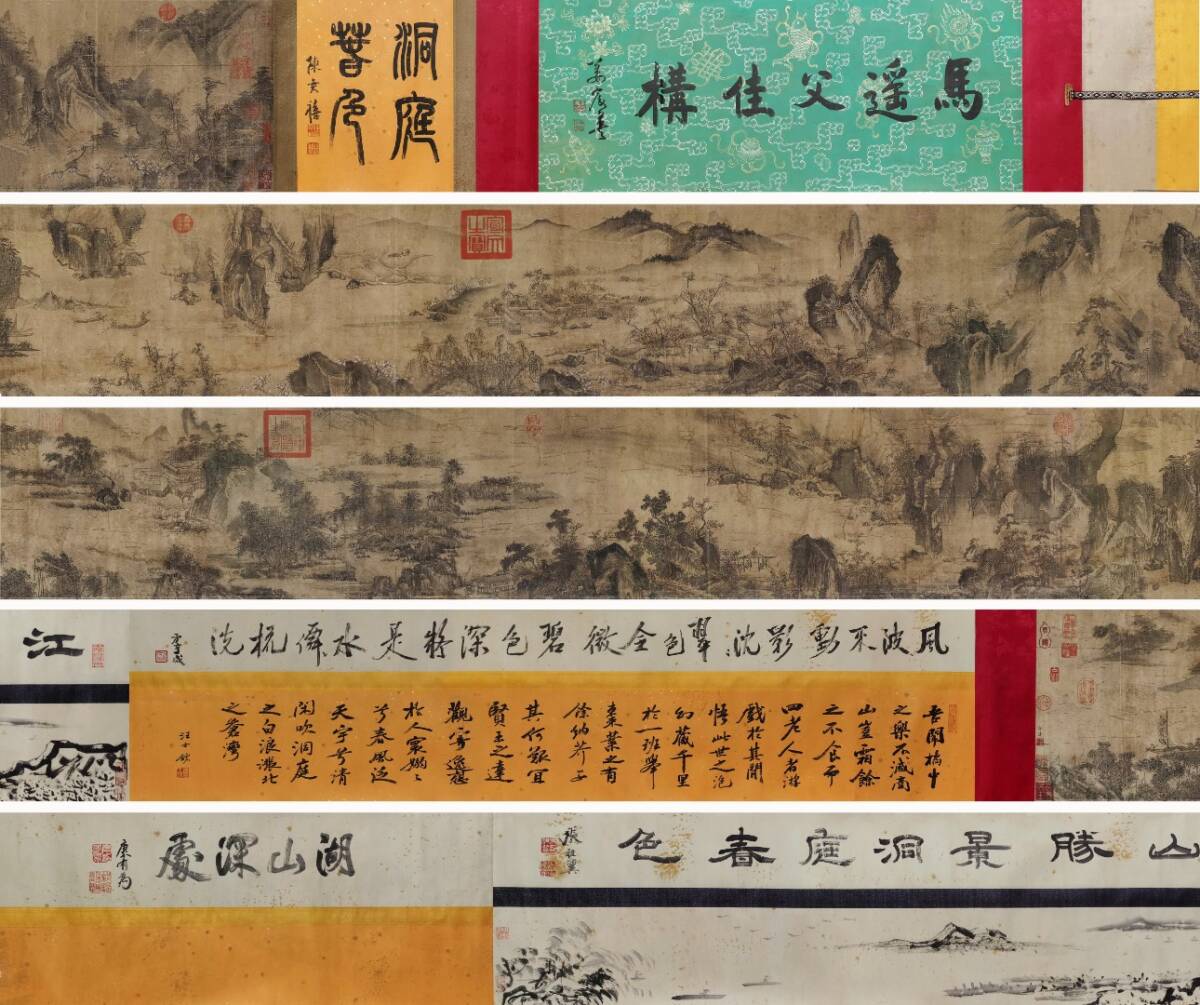 馬遥父佳構
洞庭
萅色
陳奕禧
風波不動影沈〻翠色全微碧色深將是水僊梳洗
吾聞橘中
之樂不減商
山豈霜餘
之不食而
四老人者游
戲於其間
悟此世之泡
幻藏千里
於一班舉
棗葉之有
餘納芥子
其何艱宜
賢王之達
觀寄逸想
於人寰嫋〻
兮春風泛
天宇兮清
閑吹洞庭
之白浪漲北
之蒼灣
汪士鋐
江
山勝景洞庭春色
張祖翼
湖山深處
康有為